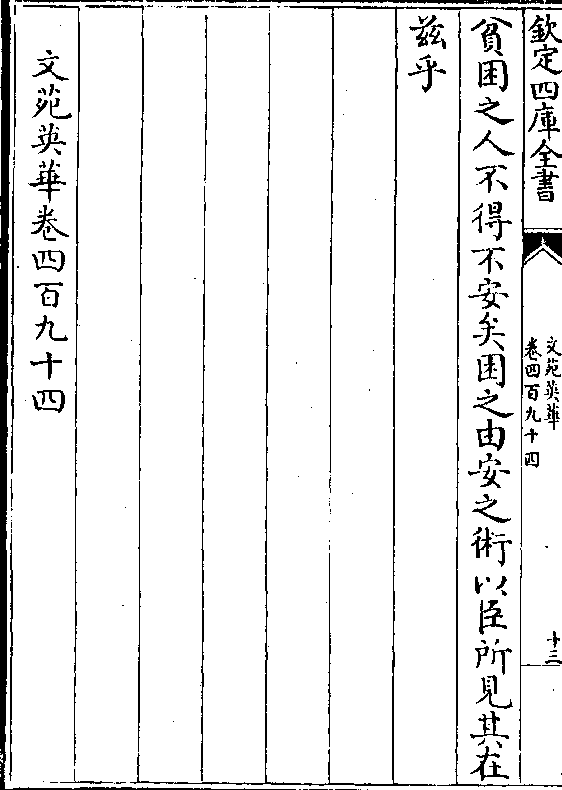 欽定四庫全書
文苑英華
卷四百九十四
十三
貧困之人不得不安矣困之由安之術以臣所見其在
兹乎
文苑英華卷四百九十四